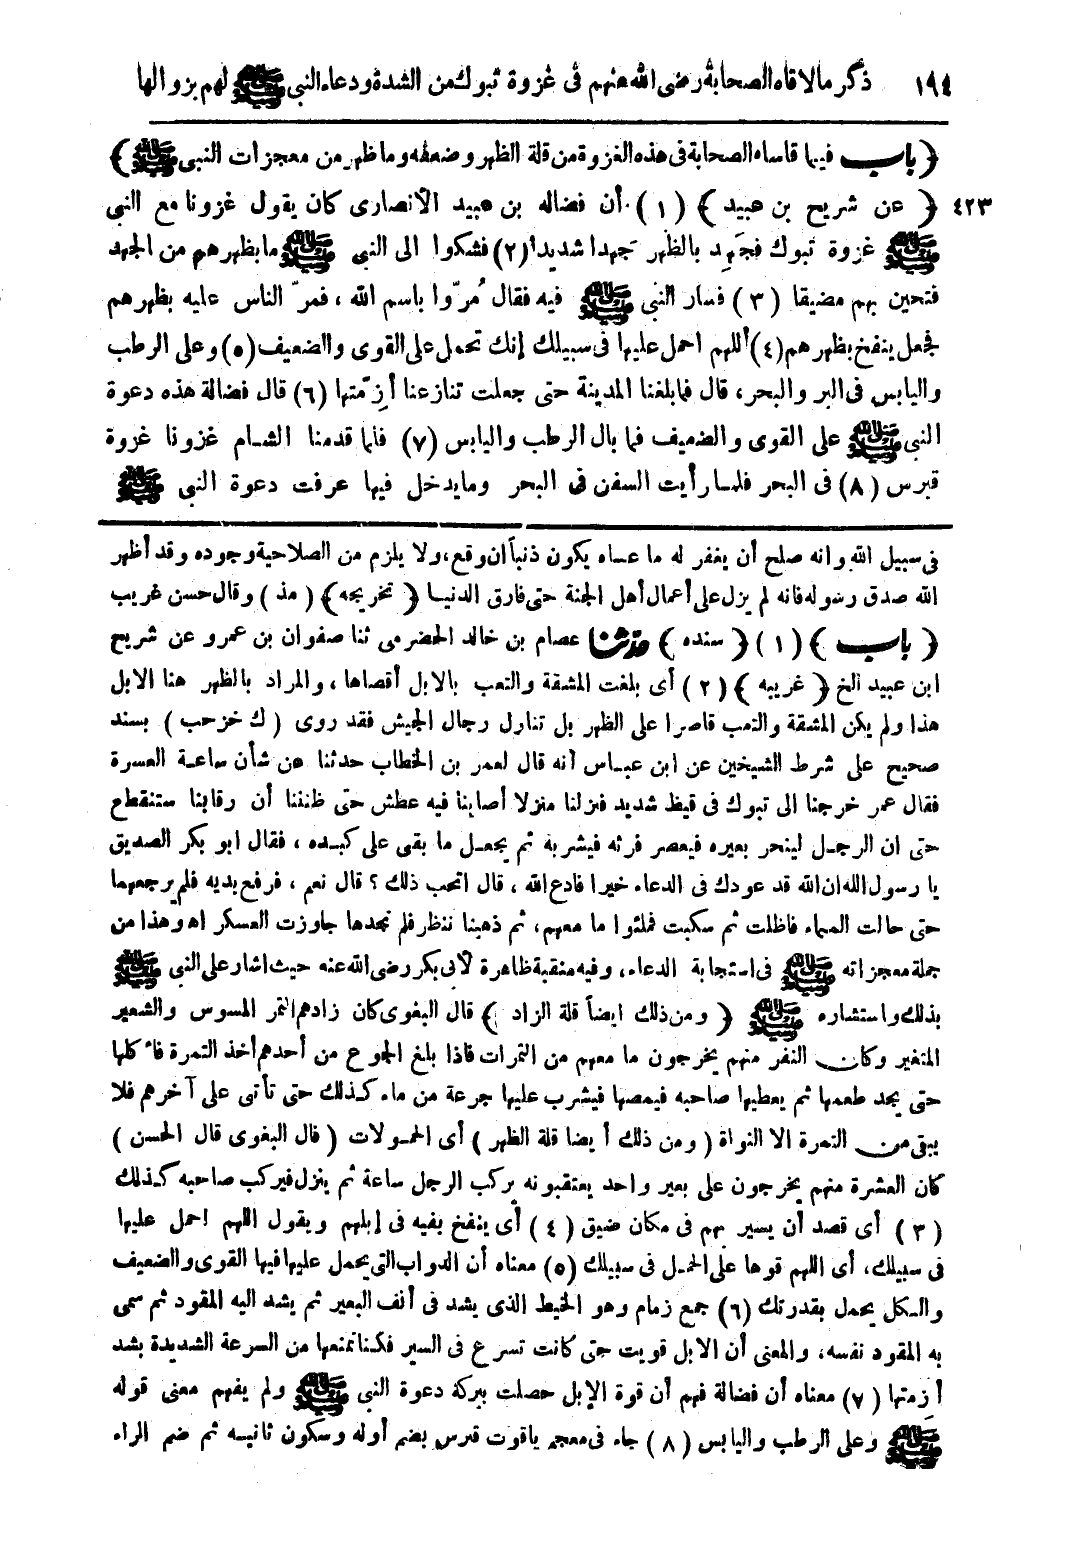 ١٩٤ ذكر مالاقاه الصحابة رضى الله عنهم فى غزوة تبوك من الشدة ودعاء النبى ﷺ لهم بزوالها
﴿ باب فيما قاساه الصحابة فى هذه الغزوة من قلة الظهر وضعفه وما ظهر من معجزات النبى ﷺ ﴾
٤٢٣ ﴿ عن شريح بن عبيد ﴾ (١) أن فضاله بن عبيد الأنصارى كان يقول غزونا مع النبى
ﷺ غزوة تبوك فجَهِد بالظهر جَهدا شديدا (٢) فشكوا الى النبى ﷺ ما بظهرهم من الجهد
فتحين بهم مضيقا (٣) فسار النبى ﷺ فيه فقال مُرّوا باسم الله ، فمرّ الناس عليه بظهرهم
فجعل ينفخ بظهرهم (٤) أللهم احمل عليها فى سبيلك إنك تحمل على القوى والضعيف (٥) وعلى الرطب
واليابس فى البر والبحر، قال فما بلغنا المدينة حتى جعلت تنازعنا أزِمّتها (٦) قال فضالة هذه دعوة
النبى ﷺ على القوى والضعيف فما بال الرطب واليابس (٧) فلما قدمنا الشام غزونا غزوة
قبرس (٨) فى البحر فلما رأيت السفن فى البحر وما يدخل فيها عرفت دعوة النبى ﷺ
فى سبيل الله وانه صلح أن يغفر له ما عساه يكون ذنباً ان وقع، ولا يلزم من الصلاحية وجوده وقد أظهر
الله صدق رسوله فانه لم يزل على أعمال أهل الجنة حتى فارق الدنيا ﴿ تخريجه ﴾ (مذ) وقال حسن غريب
﴿ باب ﴾ (١) ﴿ سنده ﴾ حدّثنا عصام بن خالد الحضرمى ثنا صفوان بن عمرو عن شريح
ابن عبيد الخ ﴿ غريبه ﴾ (٢) أى بلغت المشقة والتعب بالابل أقصاها ، والمراد بالظهر هنا الابل
هذا ولم يكن المشقة والتعب قاصرا على الظهر بل تناول رجال الجيش فقد روى (ك خز حب) بسند
صحيح على شرط الشيخين عن ابن عباس أنه قال لعمر بن الخطاب حدثنا عن شأن ساعة العسرة
فقال عمر خرجنا الى تبوك فى قيظ شديد فنزلنا منزلا أصابنا فيه عطش حتى ظننا أن رقابنا ستنقطع
حتى ان الرجل لينحر بعيره فيعصر فرثه فيشربه ثم يجعل ما بقى على كبده ، فقال ابو بكر الصديق
يا رسول الله ان الله قد عودك فى الدعاء خيرا فادع الله ، قال اتحب ذلك ؟ قال نعم ، فرفع يديه فلم يرجعهما
حتى حالت السماء فاظلت ثم سكبت فملئوا ما معهم، ثم ذهبنا ننظر فلم نجدها جاوزت العسكر اه وهذا من
جملة معجزاته ﷺ فى استجابة الدعاء، وفيه منقبة ظاهرة لأبى بكر رضى الله عنه حيث اشار على النبى ﷺ
بذلك واستشاره ﷺ ﴿ ومن ذلك ايضاً قلة الزاد ﴾ قال البغوى كان زادهم التمر المسوس والشعير
المتغير وكان النفر منهم يخرجون ما معهم من التمرات فاذا بلغ الجوع من أحدهم أخذ التمرة فأكلها
حتى يجد طعمها ثم يعطيها صاحبه فيمصها فيشرب عليها جرعة من ماء كذلك حتى تأتى على آخرهم فلا
يبقى من التمرة الا النواة (ومن ذلك أيضا قلة الظهر) أى الحمولات (قال البغوى قال الحسن)
كان العشرة منهم يخرجون على بعير واحد يعتقبونه يركب الرجل ساعة ثم ينزل فيركب صاحبه كذلك
(٣) أى قصد أن يسير بهم فى مكان ضيق (٤) أى ينفخ بفيه فى إبلهم ويقول اللهم احمل عليها
فى سبيلك، أى اللهم قوها على الحمل فى سبيلك (٥) معناه أن الدواب التى يحمل عليها فيها القوى والضعيف
والكل يحمل بقدرتك (٦) جمع زمام وهو الخيط الذى يشد فى أنف البعير ثم يشد اليه المقود ثم سمى
به المقود نفسه، والمعنى أن الابل قويت حتى كانت تسرع فى السير فكنا نمنعها من السرعة الشديدة بشد
أزِمتها (٧) معناه أن فضالة فهم أن قوة الإبل حصلت ببركة دعوة النبى ﷺ ولم يفهم معنى قوله
ﷺ وعلى الرطب واليابس (٨) جاء فى معجم ياقوت قبرس بضم أوله وسكون ثانيه ثم ضم الراء